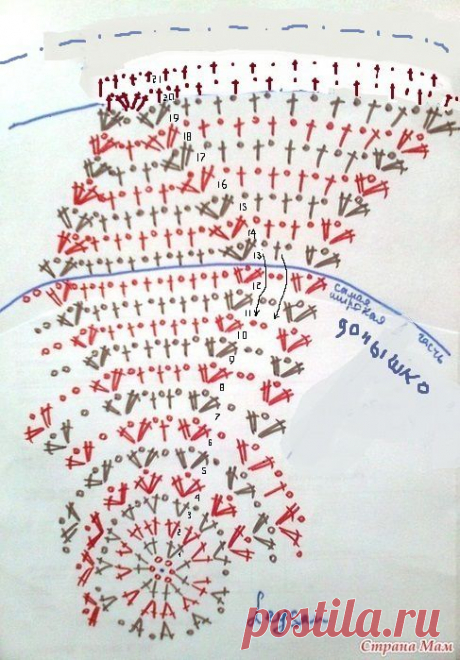 21
20
19
18
17
16
15
14
13
самая
широкая
часть
12
донышко
11
10
9
8
7
6
5
4
3
2
1
postila.ru
Страна Мам